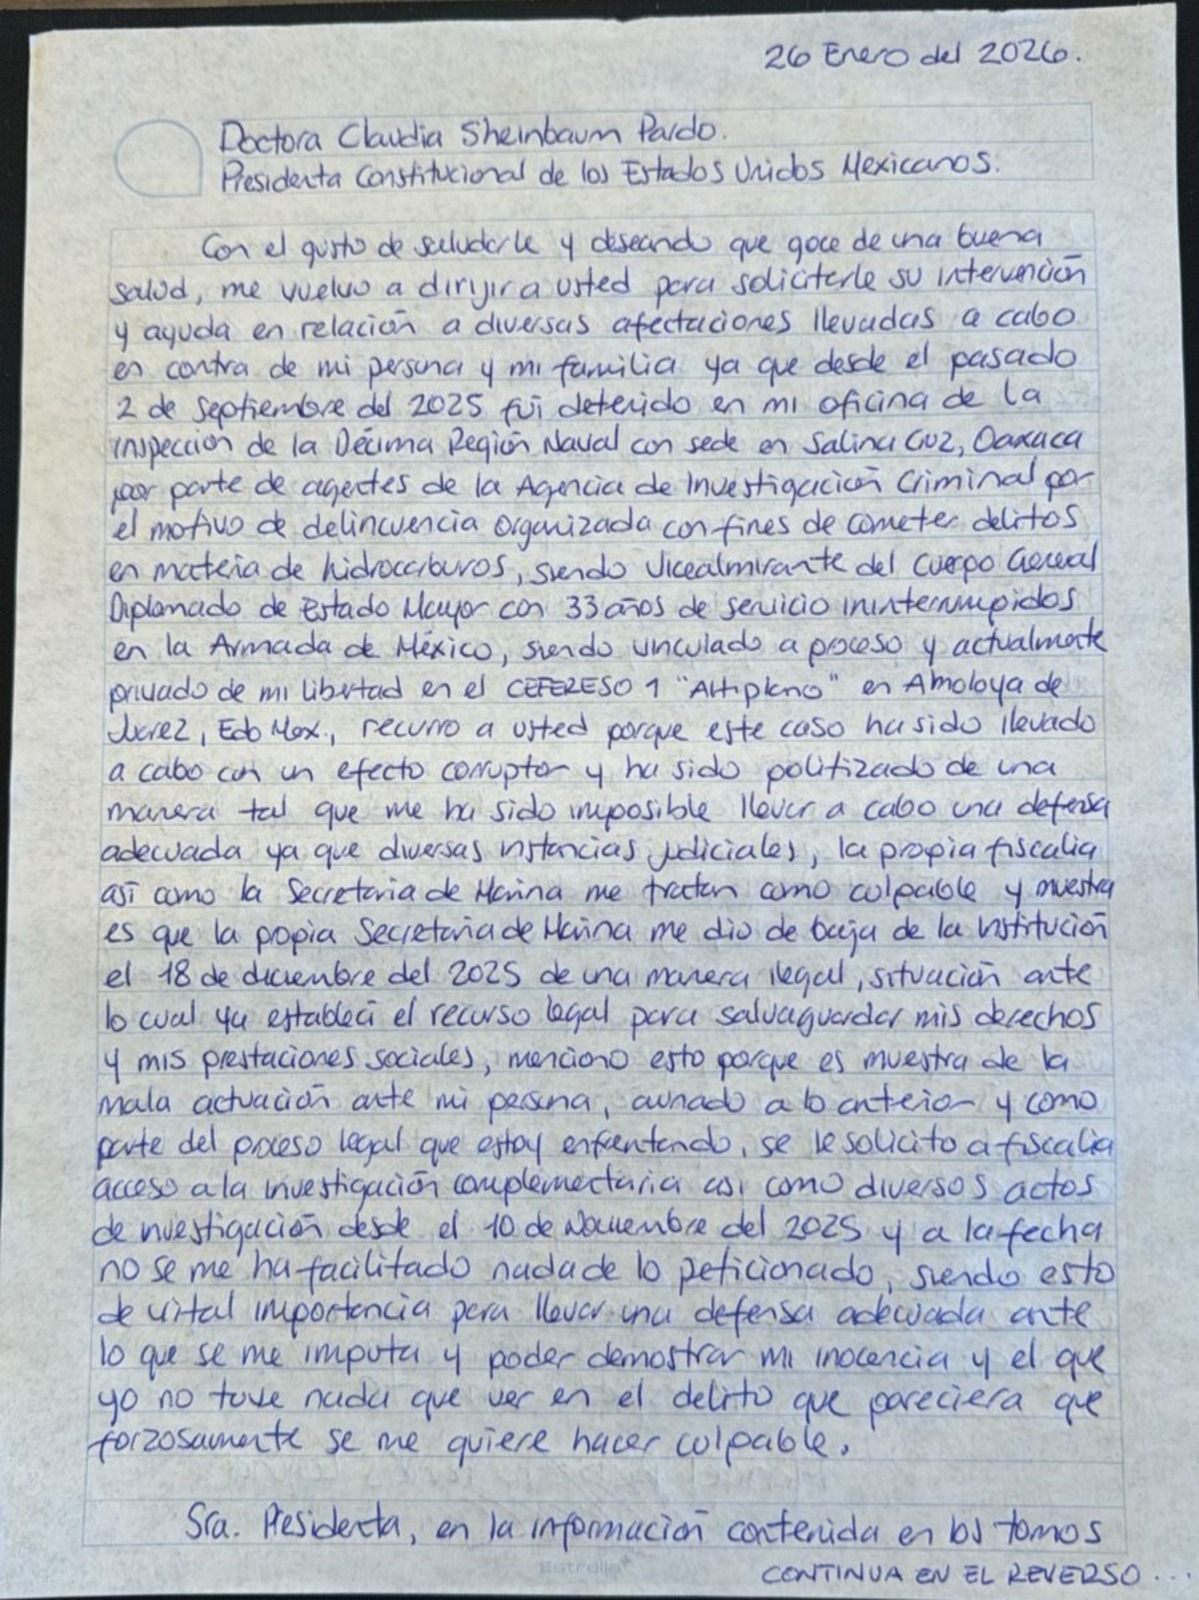 26 Enero del 2026.
Doctora Claudia Sheinbaum Pardo.
Presidenta Constitucional de los Estados Unidos Mexicanos.
Con el gusto de saludarle y deseando que goce de una buena
salud, me vuelvo a dirijir a usted para solicitarle su intervención
y ayuda en relación a diversas afectaciones llevadas a cabo
en contra de mi persona y mi familia ya que desde el pasado
2 de septiembre del 2025 fui detenido en mi oficina de la
inspección de la Décima Región Naval con sede en Salina Cruz, Oaxaca
por parte de agentes de la Agencia de Investigación Criminal por
el motivo de delincuencia organizada con fines de cometer delitos
en materia de hidrocarburos, siendo Vicealmirante del Cuerpo General
Diplomado de Estado Mayor con 33 años de servicio ininterrumpidos
en la Armada de México, siendo vinculado a proceso y actualmente
privado de mi libertad en el CEFERESO 1 "Altiplano" en Almoloya de
Juarez, Edo Mex., recurro a usted porque este caso ha sido llevado
a cabo con un efecto corruptor y ha sido politizado de una
manera tal que me ha sido imposible llevar a cabo una defensa
adecuada ya que diversas instancias judiciales, la propia fiscalia
así como la Secretaria de Marina me tratan como culpable y muestra
es que la propia Secretaria de Marina me dio de baja de la institución
el 18 de diciembre del 2025 de una manera ilegal, situación ante
lo cual ya establecí el recurso legal para salvaguardar mis derechos
y mis prestaciones sociales, menciono esto porque es muestra de la
mala actuación ante mi persona, aunado a lo anterior y como
parte del proceso legal que estoy enfrentando, se le solicito a fiscalia
acceso a la investigación complementaria asi como diversos actos
de investigación desde el 10 de Noviembre del 2025 y a la fecha
no se me ha facilitado nada de lo peticionado, siendo esto
de vital importancia para llevar una defensa adecuada ante
lo que se me imputa y poder demostrar mi inocencia y el que
yo no tuve nada que ver en el delito que pareciera que
forzosamente se me quiere hacer culpable.
Sra. Presidenta, en la información contenida en los tomos
Estrella
CONTINUA EN EL REVERSO ...